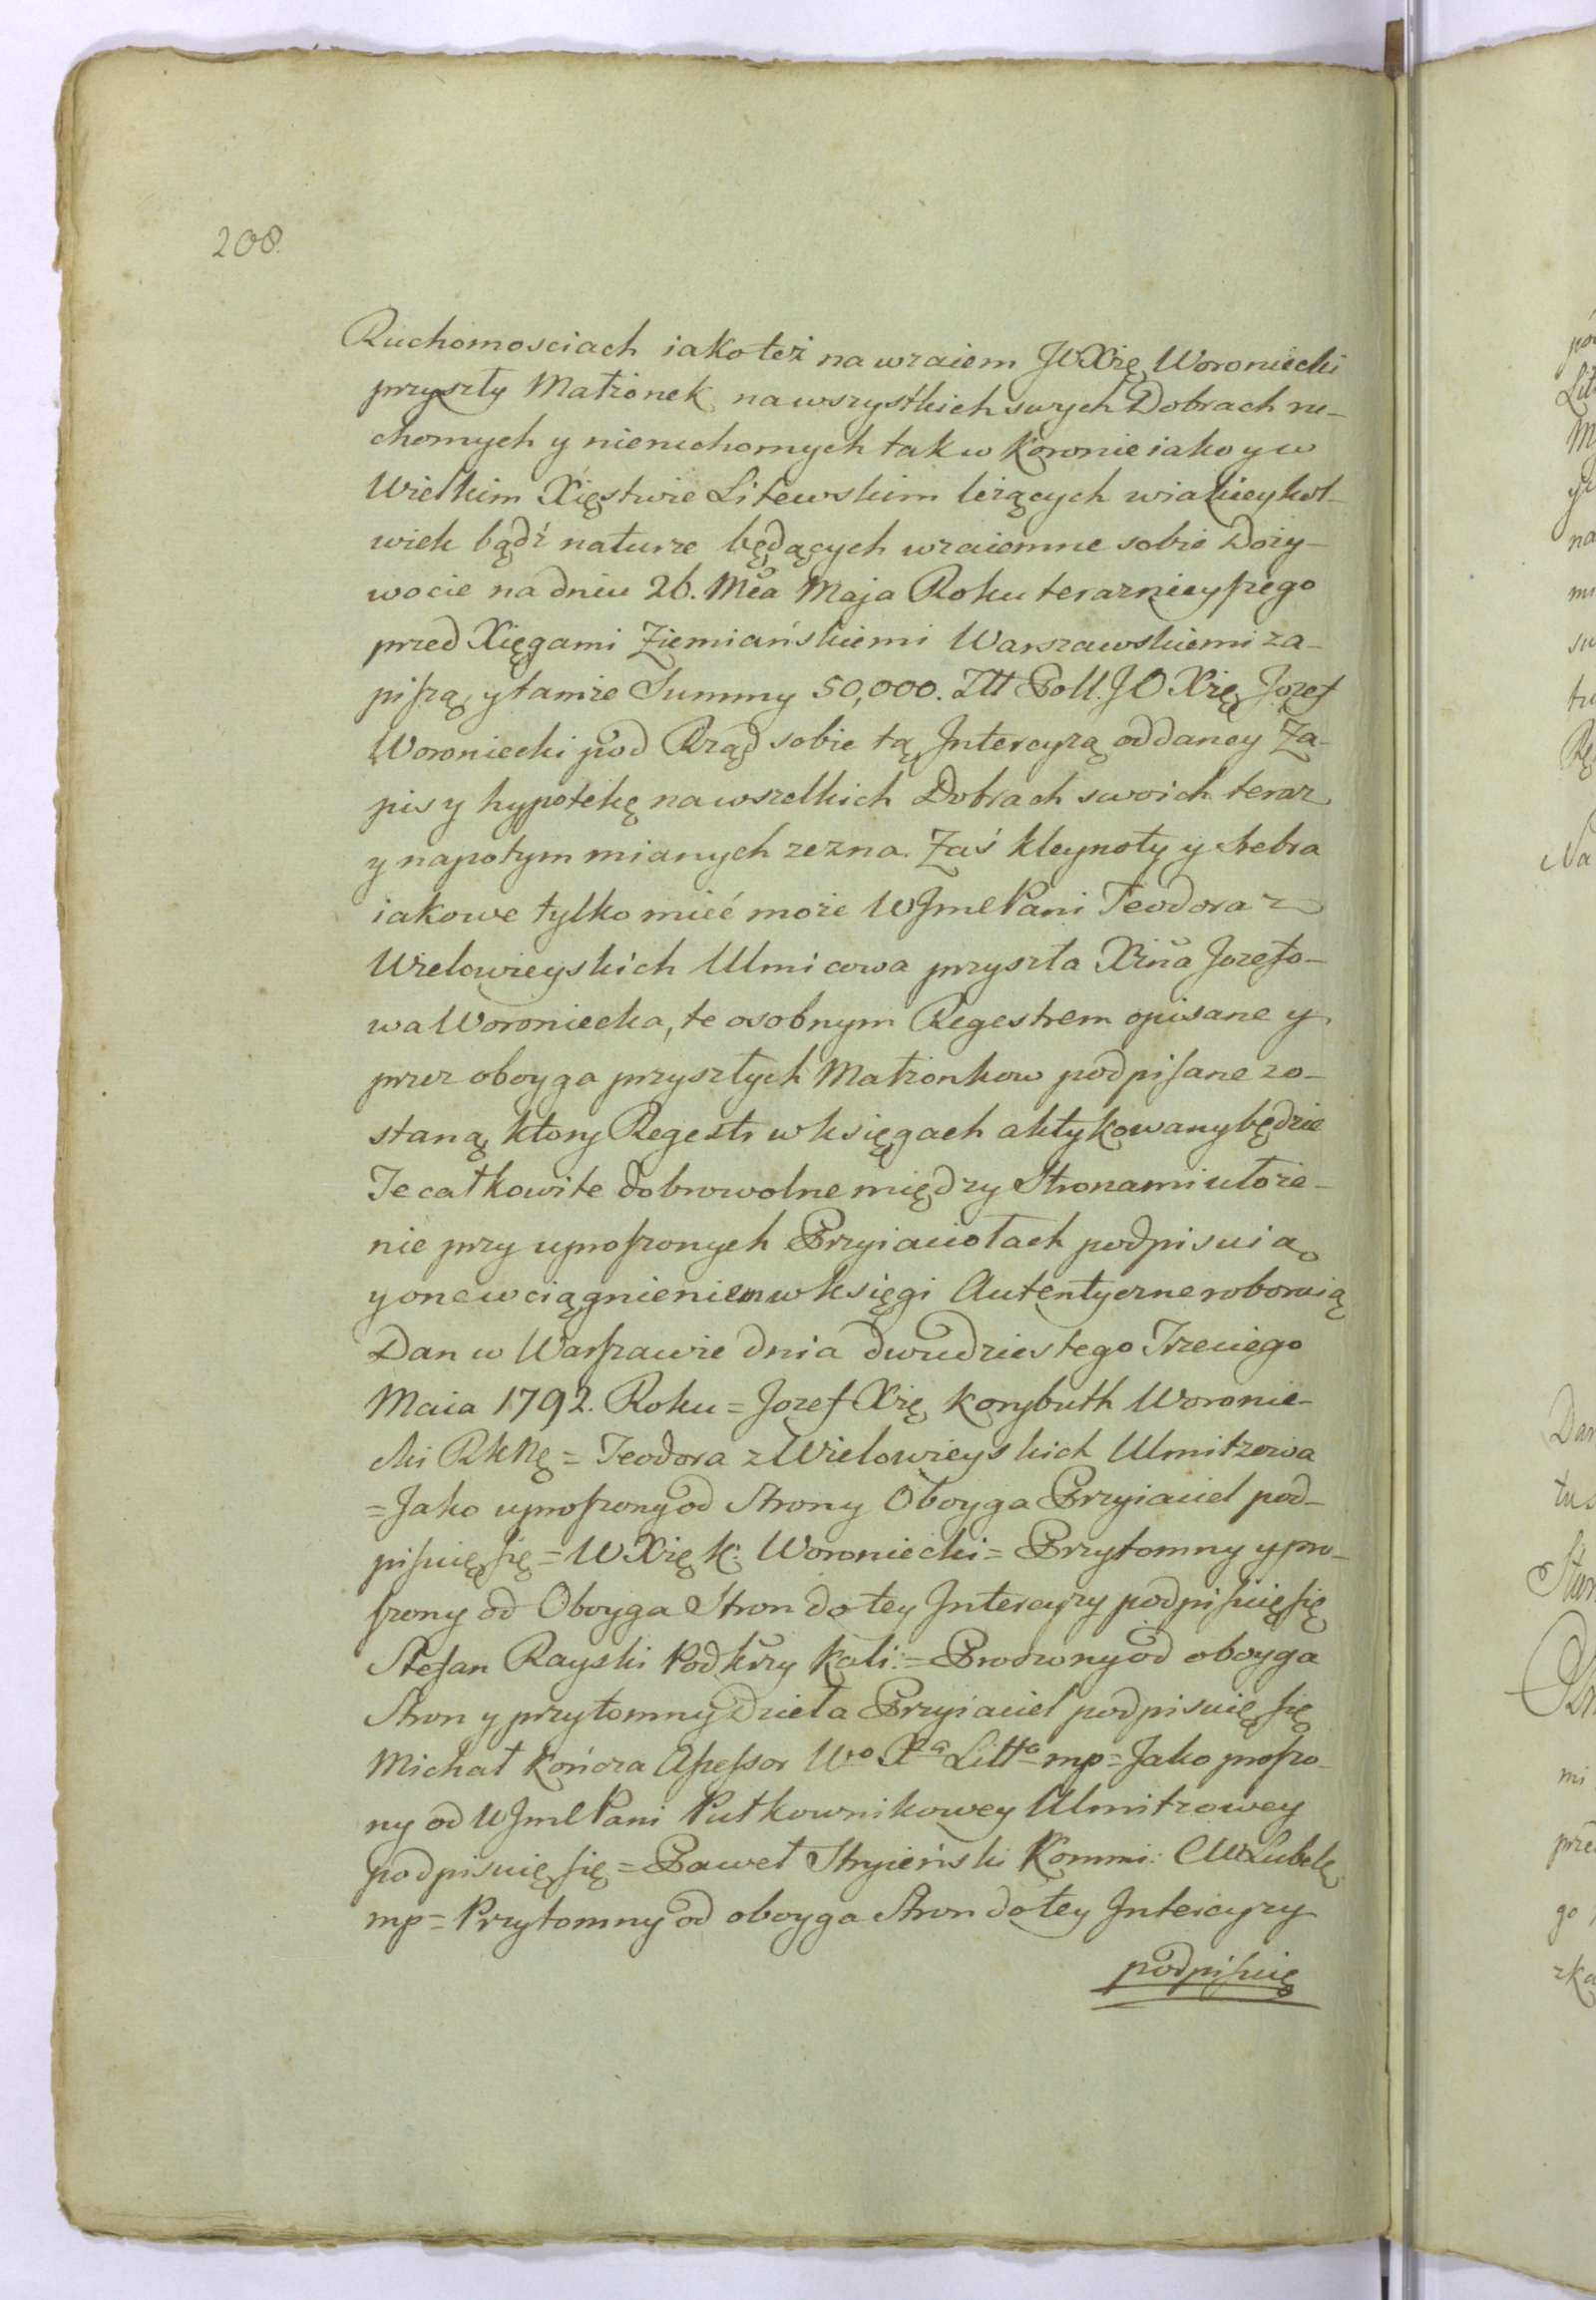 208.
Ruchomosciach iako też na wzaiem JOXię Woroniecki
przyszły Małżonek na wszystkich swych Dobrach ru-
chomych y nieruchomych tak w Koronie iako y w
Wielkim Xięstwie Litewskim leżących w iakieykol-
wiek bądź naturze będących wzaiemne sobie Doży-
wocie na dniu 26. Mca Maja Roku teraznieyszego
przed Xięgami Ziemiańskiemi Warszawskiemi za-
piszą, y tamże Summy 50,000. Złł Poll. JO Xię Jozef
Woroniecki pod Rząd sobie tą Intercyzą oddaney Za-
pis y hypotekę na wszelkich Dobrach swoich teraz
y napotym mianych zezna. Zaś kleynoty y srebra
iakowe tylko mieć może WJmć Pani Teodora z
Wielowieyskich Ulmicowa przyszła Xżna Jozefo-
wa Woroniecka, te osobnym Regestrem opisane y
przez oboyga przyszłych Małżonkow podpisane zo-
staną, ktory Regestr w księgach aktykowany będzie
Te całkowite dobrowolne między Stronami ułoże-
nie przy uproszonych Przyiaciołach podpisuią
y one wciągnieniem w księgi Autentyczne roboruią
Dan w Warszawie dnia dwudziestego Trzeciego
Maia 1792. Roku = Jozef Xię Korybuth Woronie-
cki = Teodora z Wielowieyskich Ulmitzowa
= Jako uproszony od Strony Oboyga Przyiaciel pod-
pisuię się = W Xię K: Woroniecki = Przytomny y pro-
szony od Oboyga Stron do tey Intercyzy podpisuię się
Stefan Rayski Podkrzy Kali: = Proszony od oboyga
Stron y przytomny Dzieła Przyiaciel podpisuię się
Michał Kończa Assessor Wo Xa Litto mp = Jako proszo-
ny od WJmć Pani Pułkownikowey Ulmitzowey
podpisuię się = Paweł Stryieński Kommi: CW Lubel:
mp = Przytomny od oboyga Stron do tey Intercyzy
podpisuię